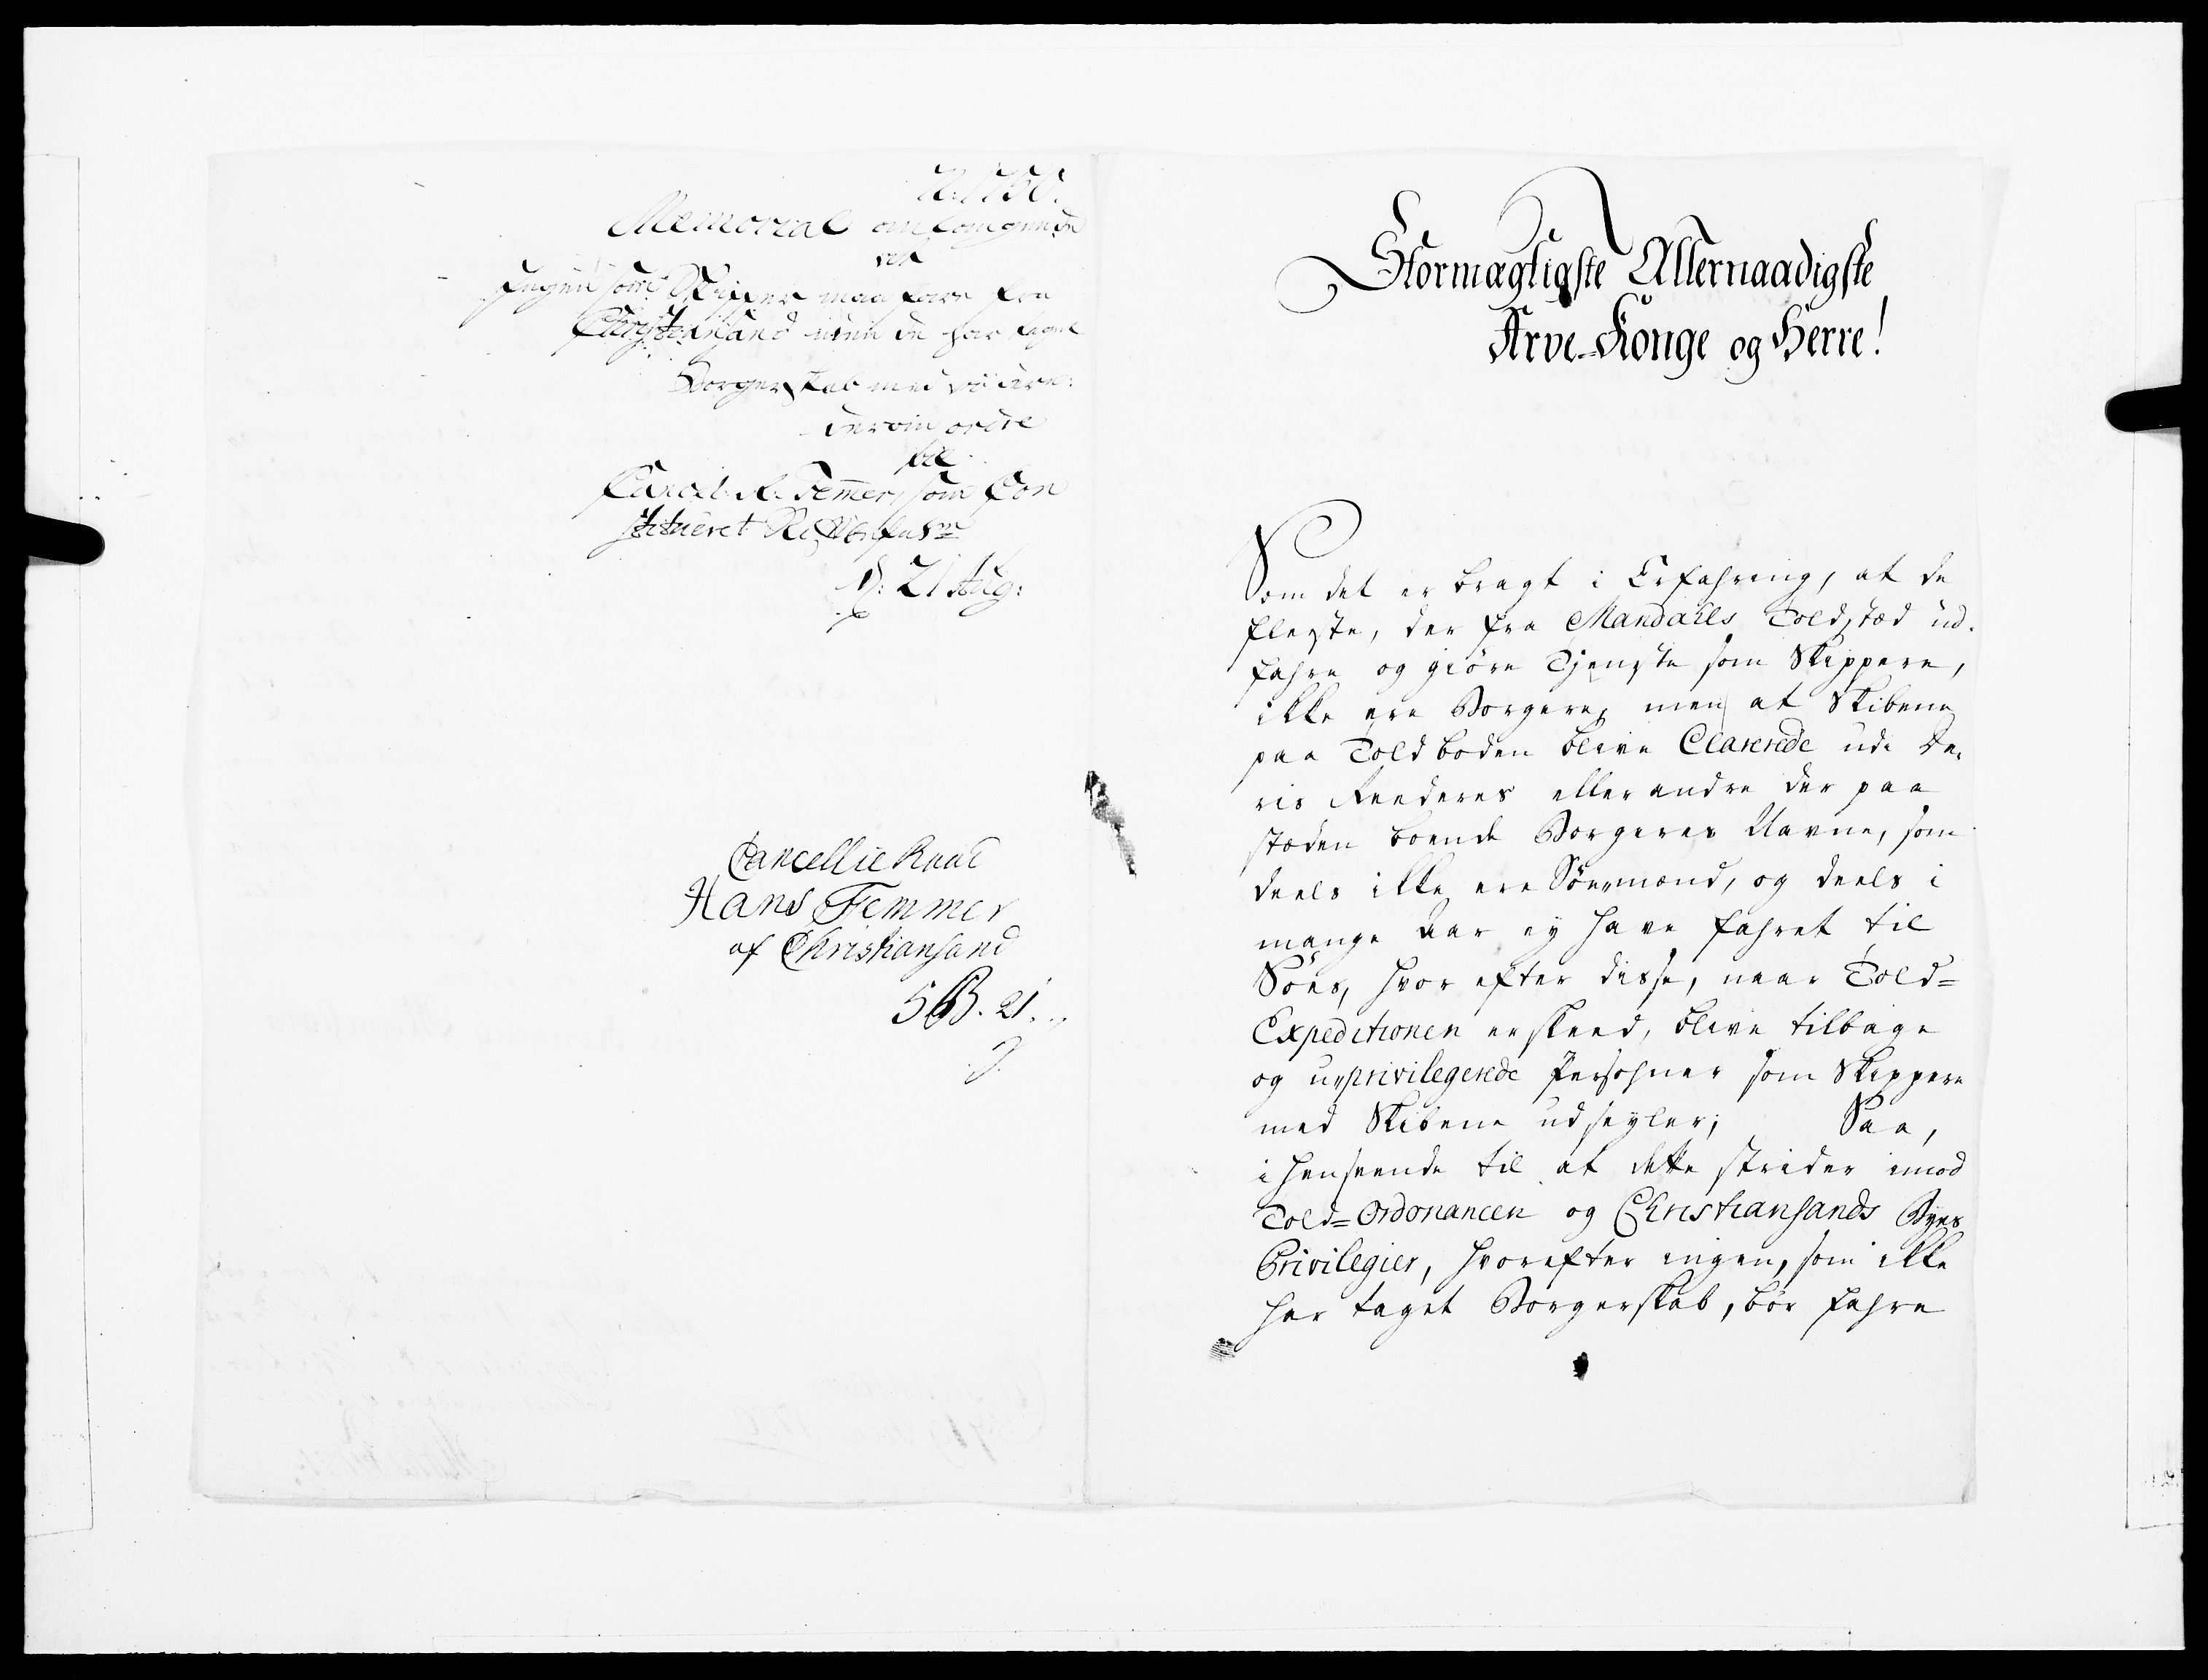 Memorial anlangende
at
Ingen som Skipper maa fare fra
Christiansand uden de har taget
Borgerskab med videre
Cancel. R. Femmer, som Con
stitueret
D: 21 Aug:
Cancellie Raad
Hans Femmer
af Christiansand
5 B. 21.
Stormægtigste Allernaadigste
Arve-Konge og Herre!
Som det er bragt i Erfahring, at de
fleste, der fra Mandahls Toldstæd ud-
fahre og giöre Tjenste som Skippere,
ikke ere Borgere, men at Skibene
paa Toldboden blive Clarerede udi De-
ris Reederes eller andre der paa
stæden boende Borgeres Navne, som
deels ikke ere Söemænd, og deels i
mange Aar ey have fahret til
Söes, hvor efter disse, naar Told=
Expeditionen er skeed, blive tilbage
og u-privilegerede Persohner som Skippere
med Skibene udseyler; Saa,
i henseende til at dette strider imod
Told=Ordonancen og Christiansands Byes
Privilegier, hvorefter ingen, som ikke
har taget Borgerskab, bör fahre